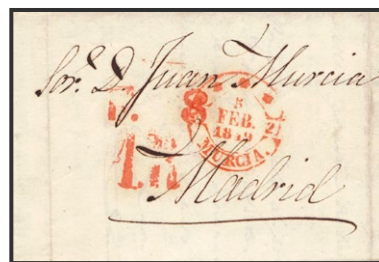 Sor. D. Juan Murcia
5
FEB.
1842
MURCIA.
Madrid